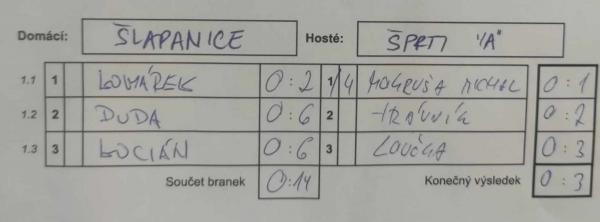 Domácí: ŠLAPANICE Hosté: ŠPRTI "A"
1.1 1 KOMÁREK 0:2 1/4 MOHRUŠA MICHAL 0:1
1.2 2 DUDA 0:6 2 TRÁVNÍK 0:2
1.3 3 LUCIÁN 0:6 3 LOUČKA 0:3
Součet branek 0:14 Konečný výsledek 0:3